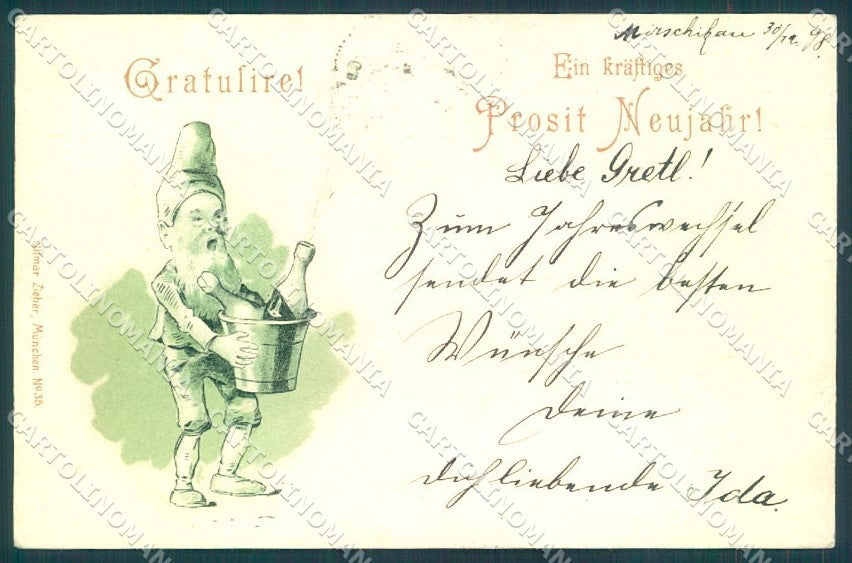 Mirschikau 30/12. 98.
Gratulire!
Ein kräftiges
Prosit Neujahr!
Liebe Gretl!
Zum Jahreswechsel
sendet die besten
Wünsche
Deine
dichliebende Ida.
Ottmar Zieher, München No. 38.
CARTOLINOMANIA